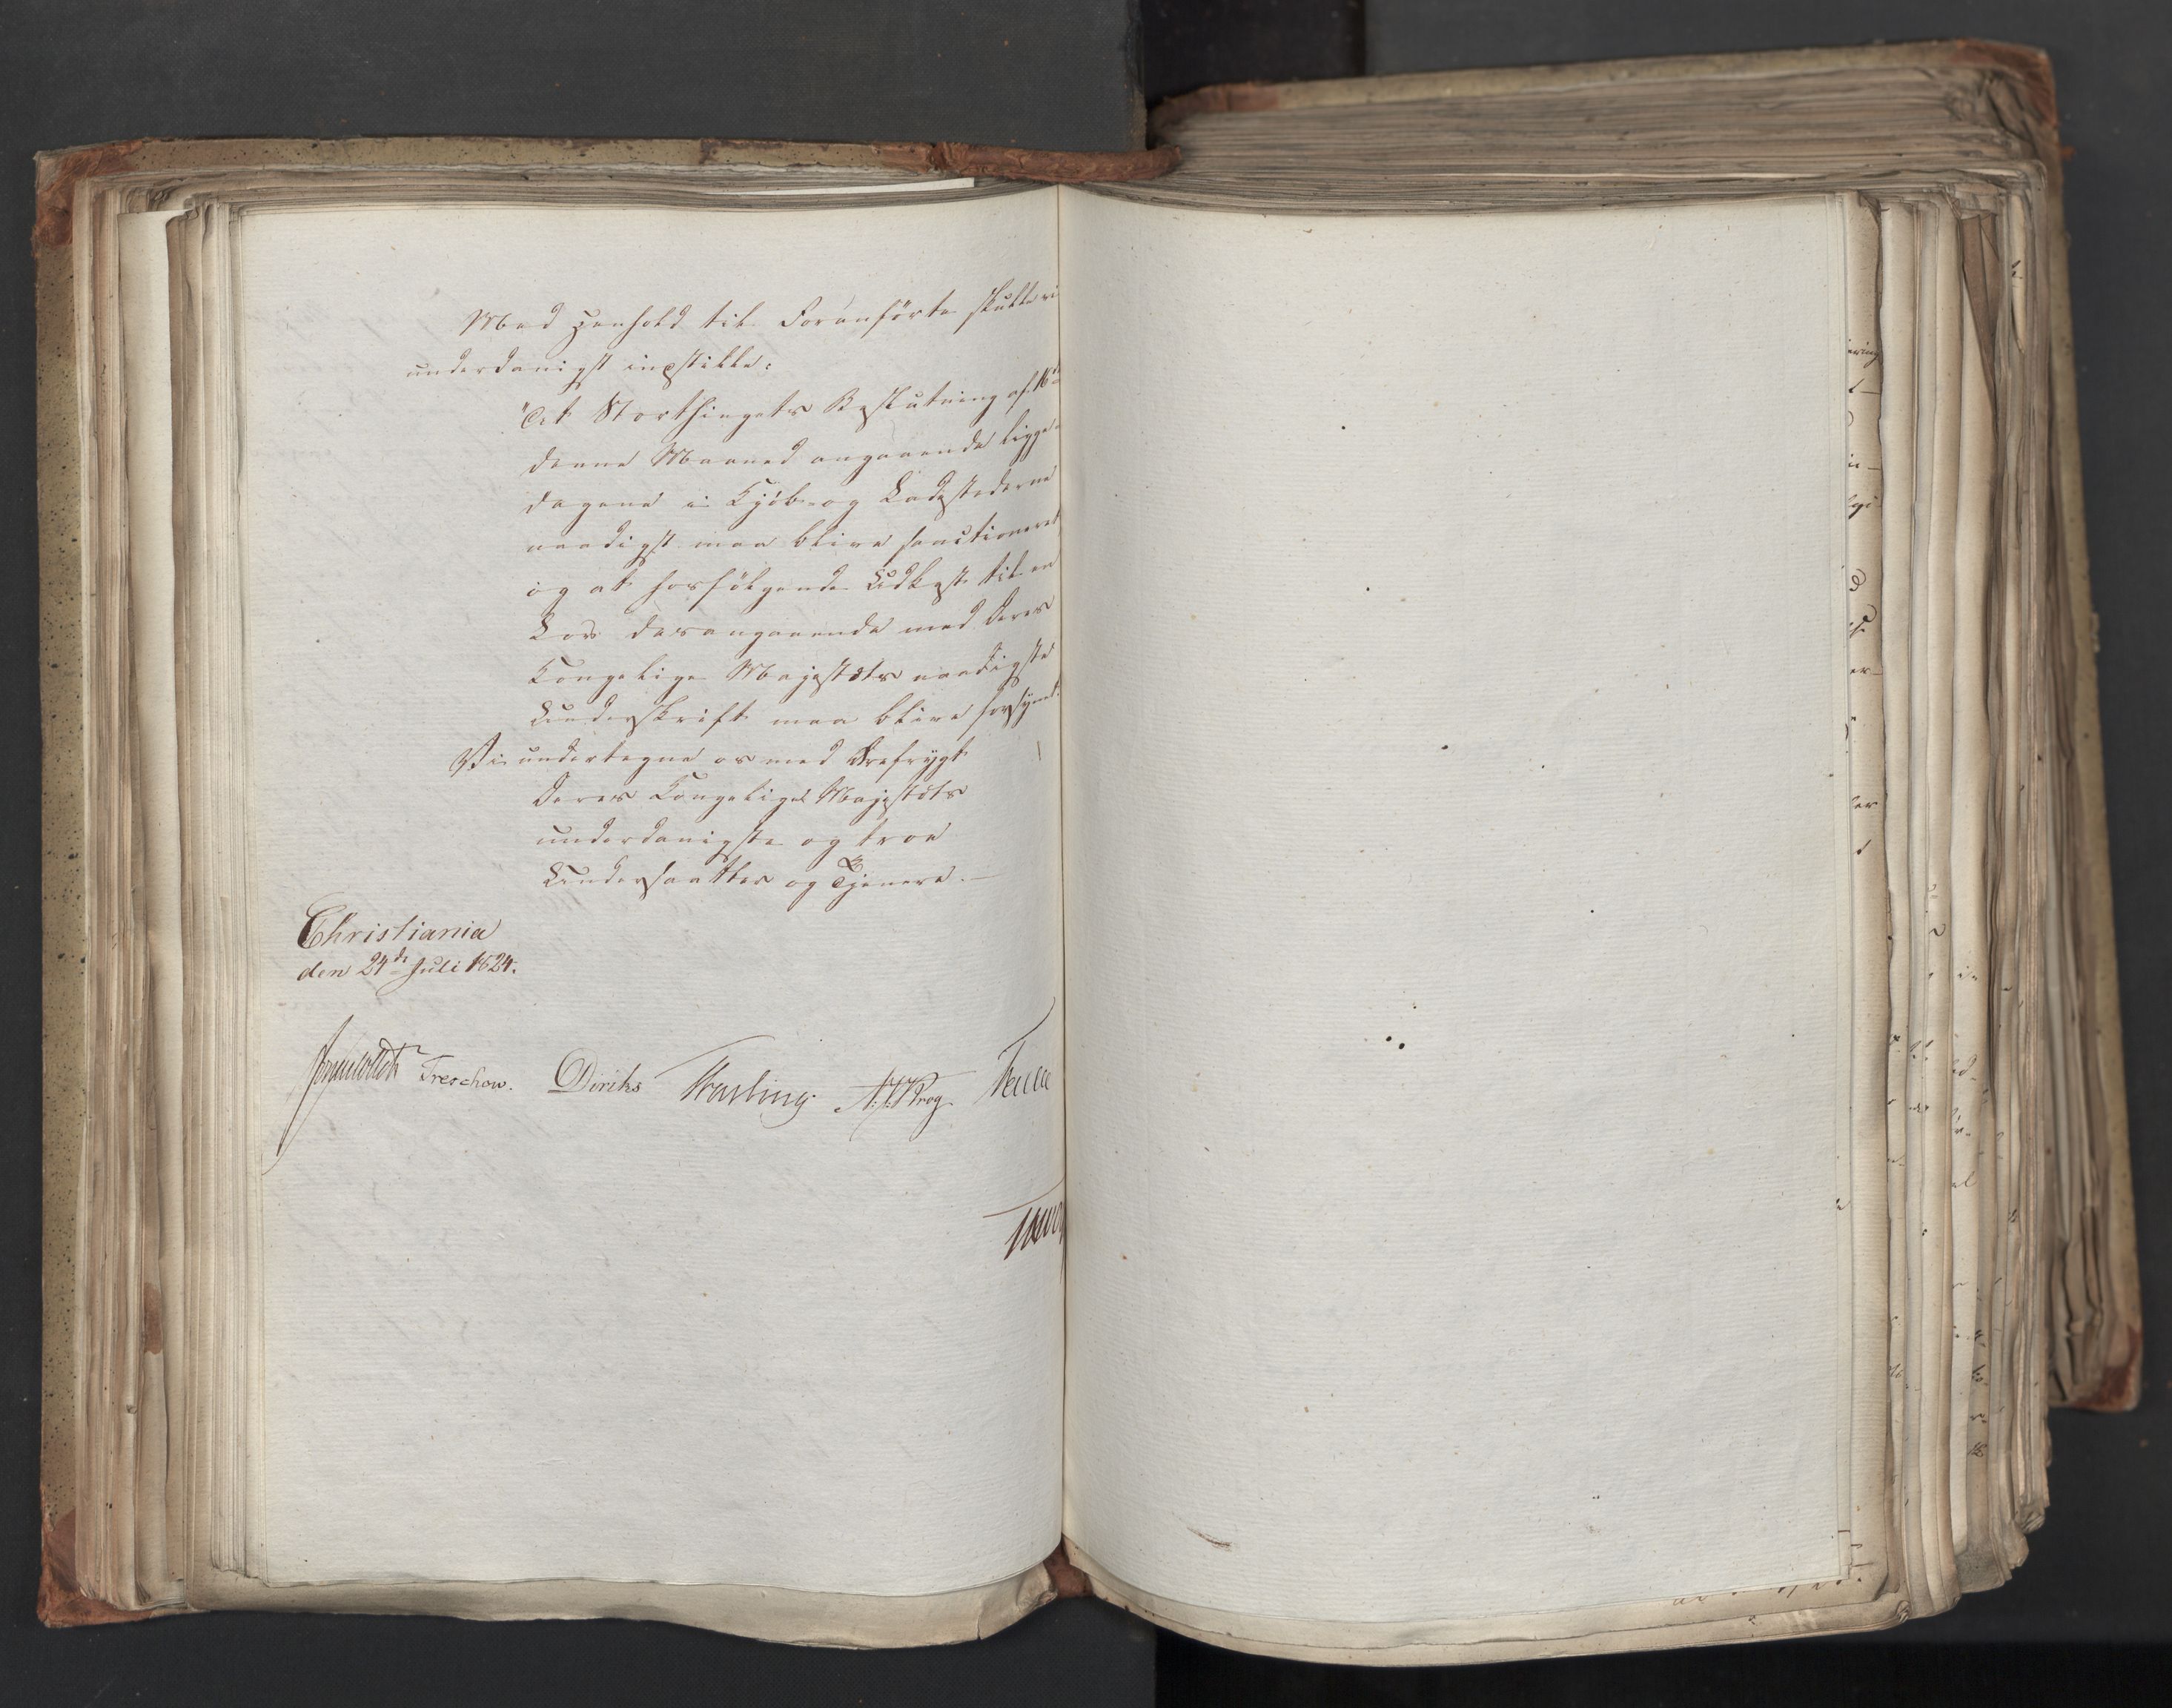 Med Henhold til Foranførte skulle vi
underdanigst indstille:
"At Storthingets Beslutning af 16de
denne Maaned angaaende Ligge-
dagene i Kjøb- og Ladestederne
naadigst maa blive sanctioneret
og at hosfølgende Udkast til en
Lov derangaaende med Deres
Kongelige Majestæts naadigste
Underskrift maa blive forsynet.
Vi undertegne os med Ærefrygt
Deres Kongelige Majestæts
underdanigste og troe
Undersaatter og Tjenere.
Christiania
den 24de Juli 1824.
Treschow. Diriks Krog